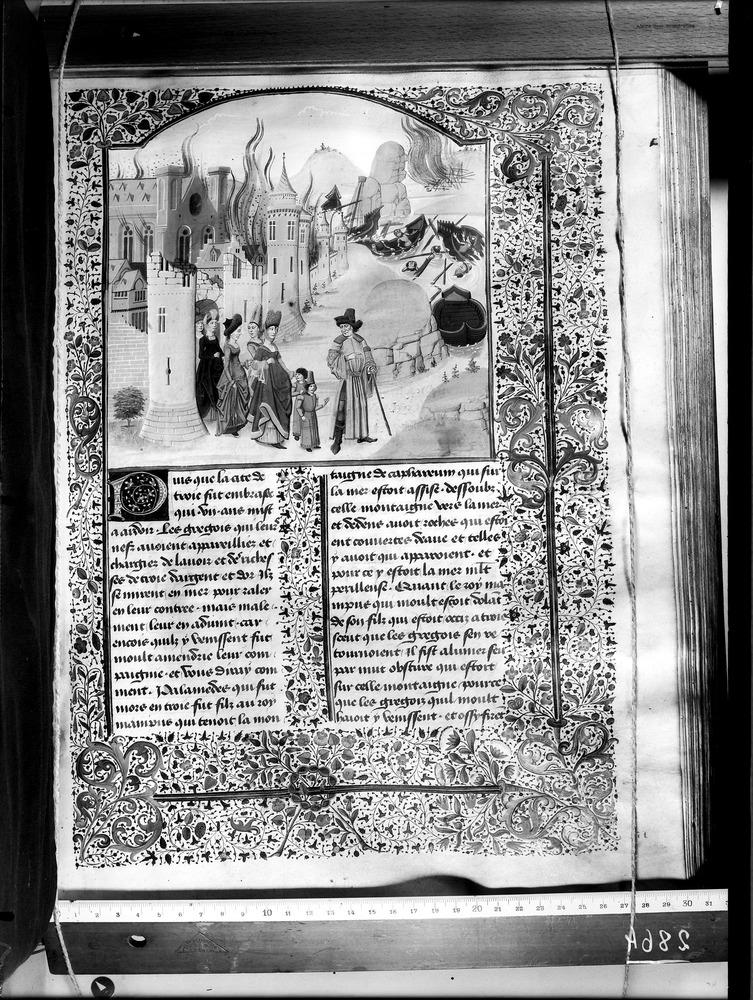 Puis que la cite de
troie fut embrasee
qui .vn. ans mist
a ardoir. Les gregois qui leurs
nefz auoient appareillies et
chargies de lauoir et des riches
ses de troie dargent et dor Ilz
se mirent en mer pour raler
en leur contree. mais male
ment leur en aduint. car
encois quilz y venissent fut
moult amendrie leur com
paignie. et vous diray com
ment. Palamedes qui fut
mors en troie fut filz au roy
maupus qui tenoit la mon
taigne de caphareum qui sur
la mer estoit assise. dessoubz
celle montaigne vers la mer
et dedens auoit roches qui estoi
ent couuertes deaue et telles
y auoit qui apparoient. et
pour ce y estoit la mer
perilleuse. Quant le roy ma
upus qui moult estoit dolant
de son filz qui estoit occiz a troie
sceut que les gregois sen re
tournoient Il fist alumer feu
par nuit obscure qui estoit
sur celle montaigne pource
que les gregois quil moult
haoit y venissent. et ossy firet
1 2 3 4 5 6 7 8 9 10 11 12 13 14 15 16 17 18 19 20 21 22 23 24 25 26 27 28 29 30 31
2864